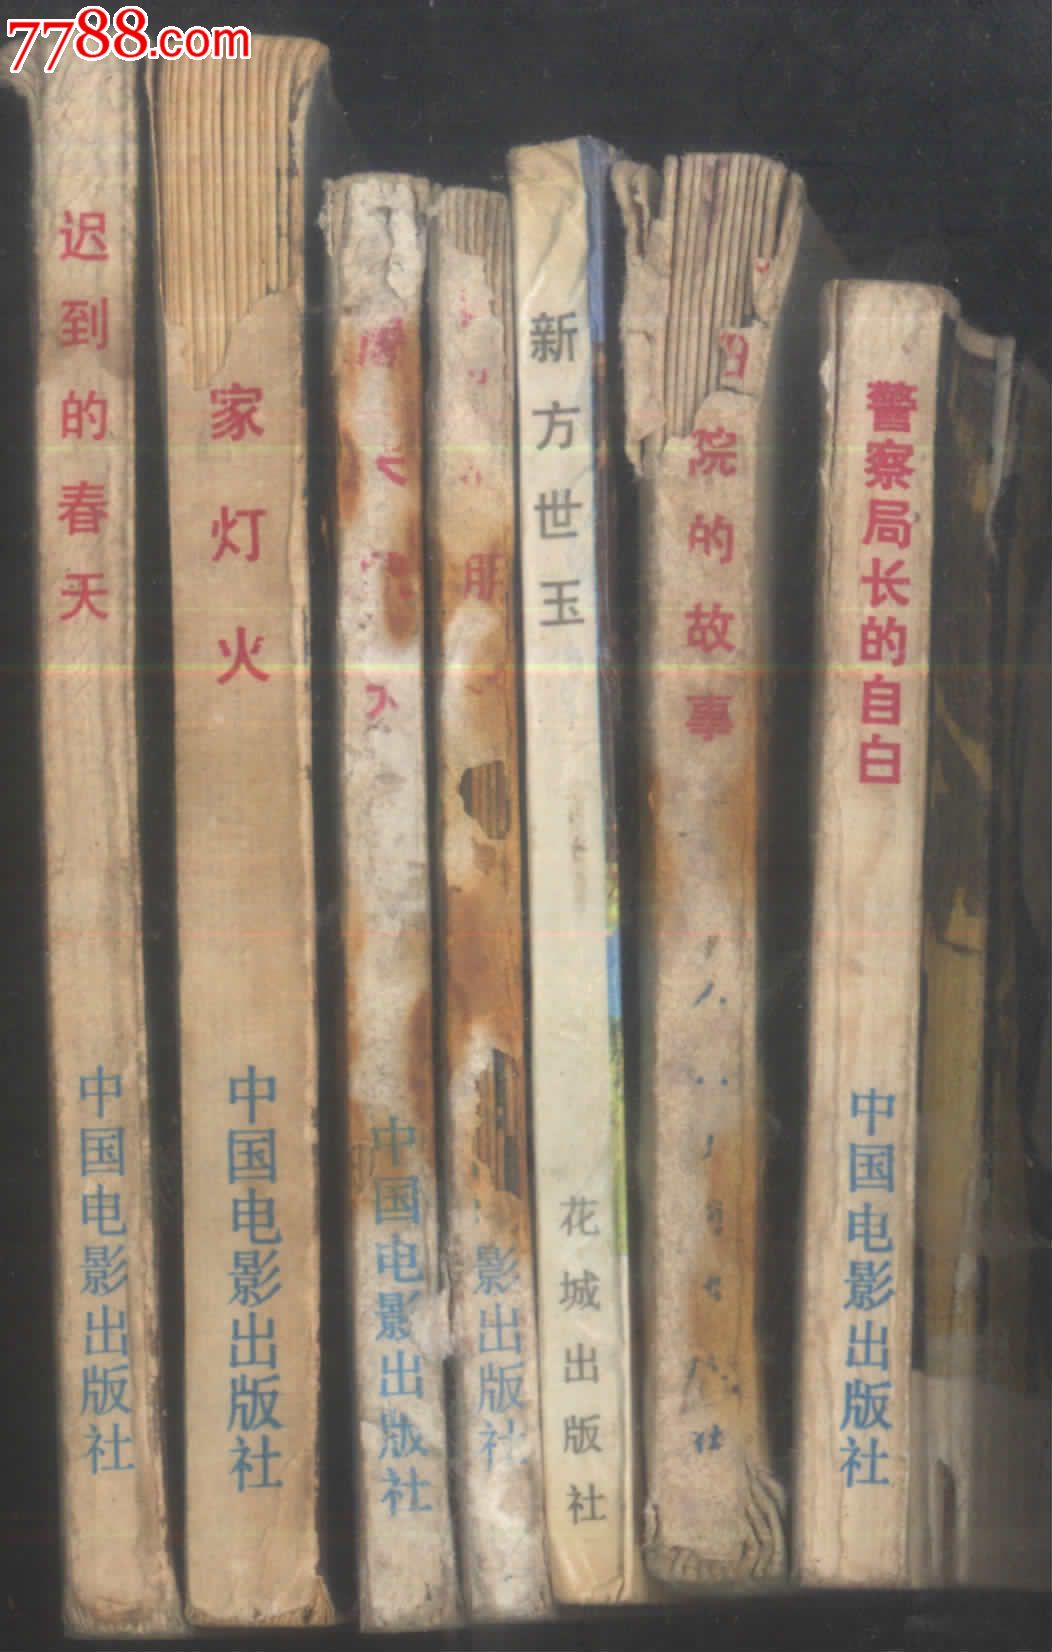 7788.com
迟到的春天
中国电影出版社
家灯火
中国电影出版社
中国电影出版社
朋
影出版社
新方世玉
花城出版社
院的故事
社
警察局长的自白
中国电影出版社